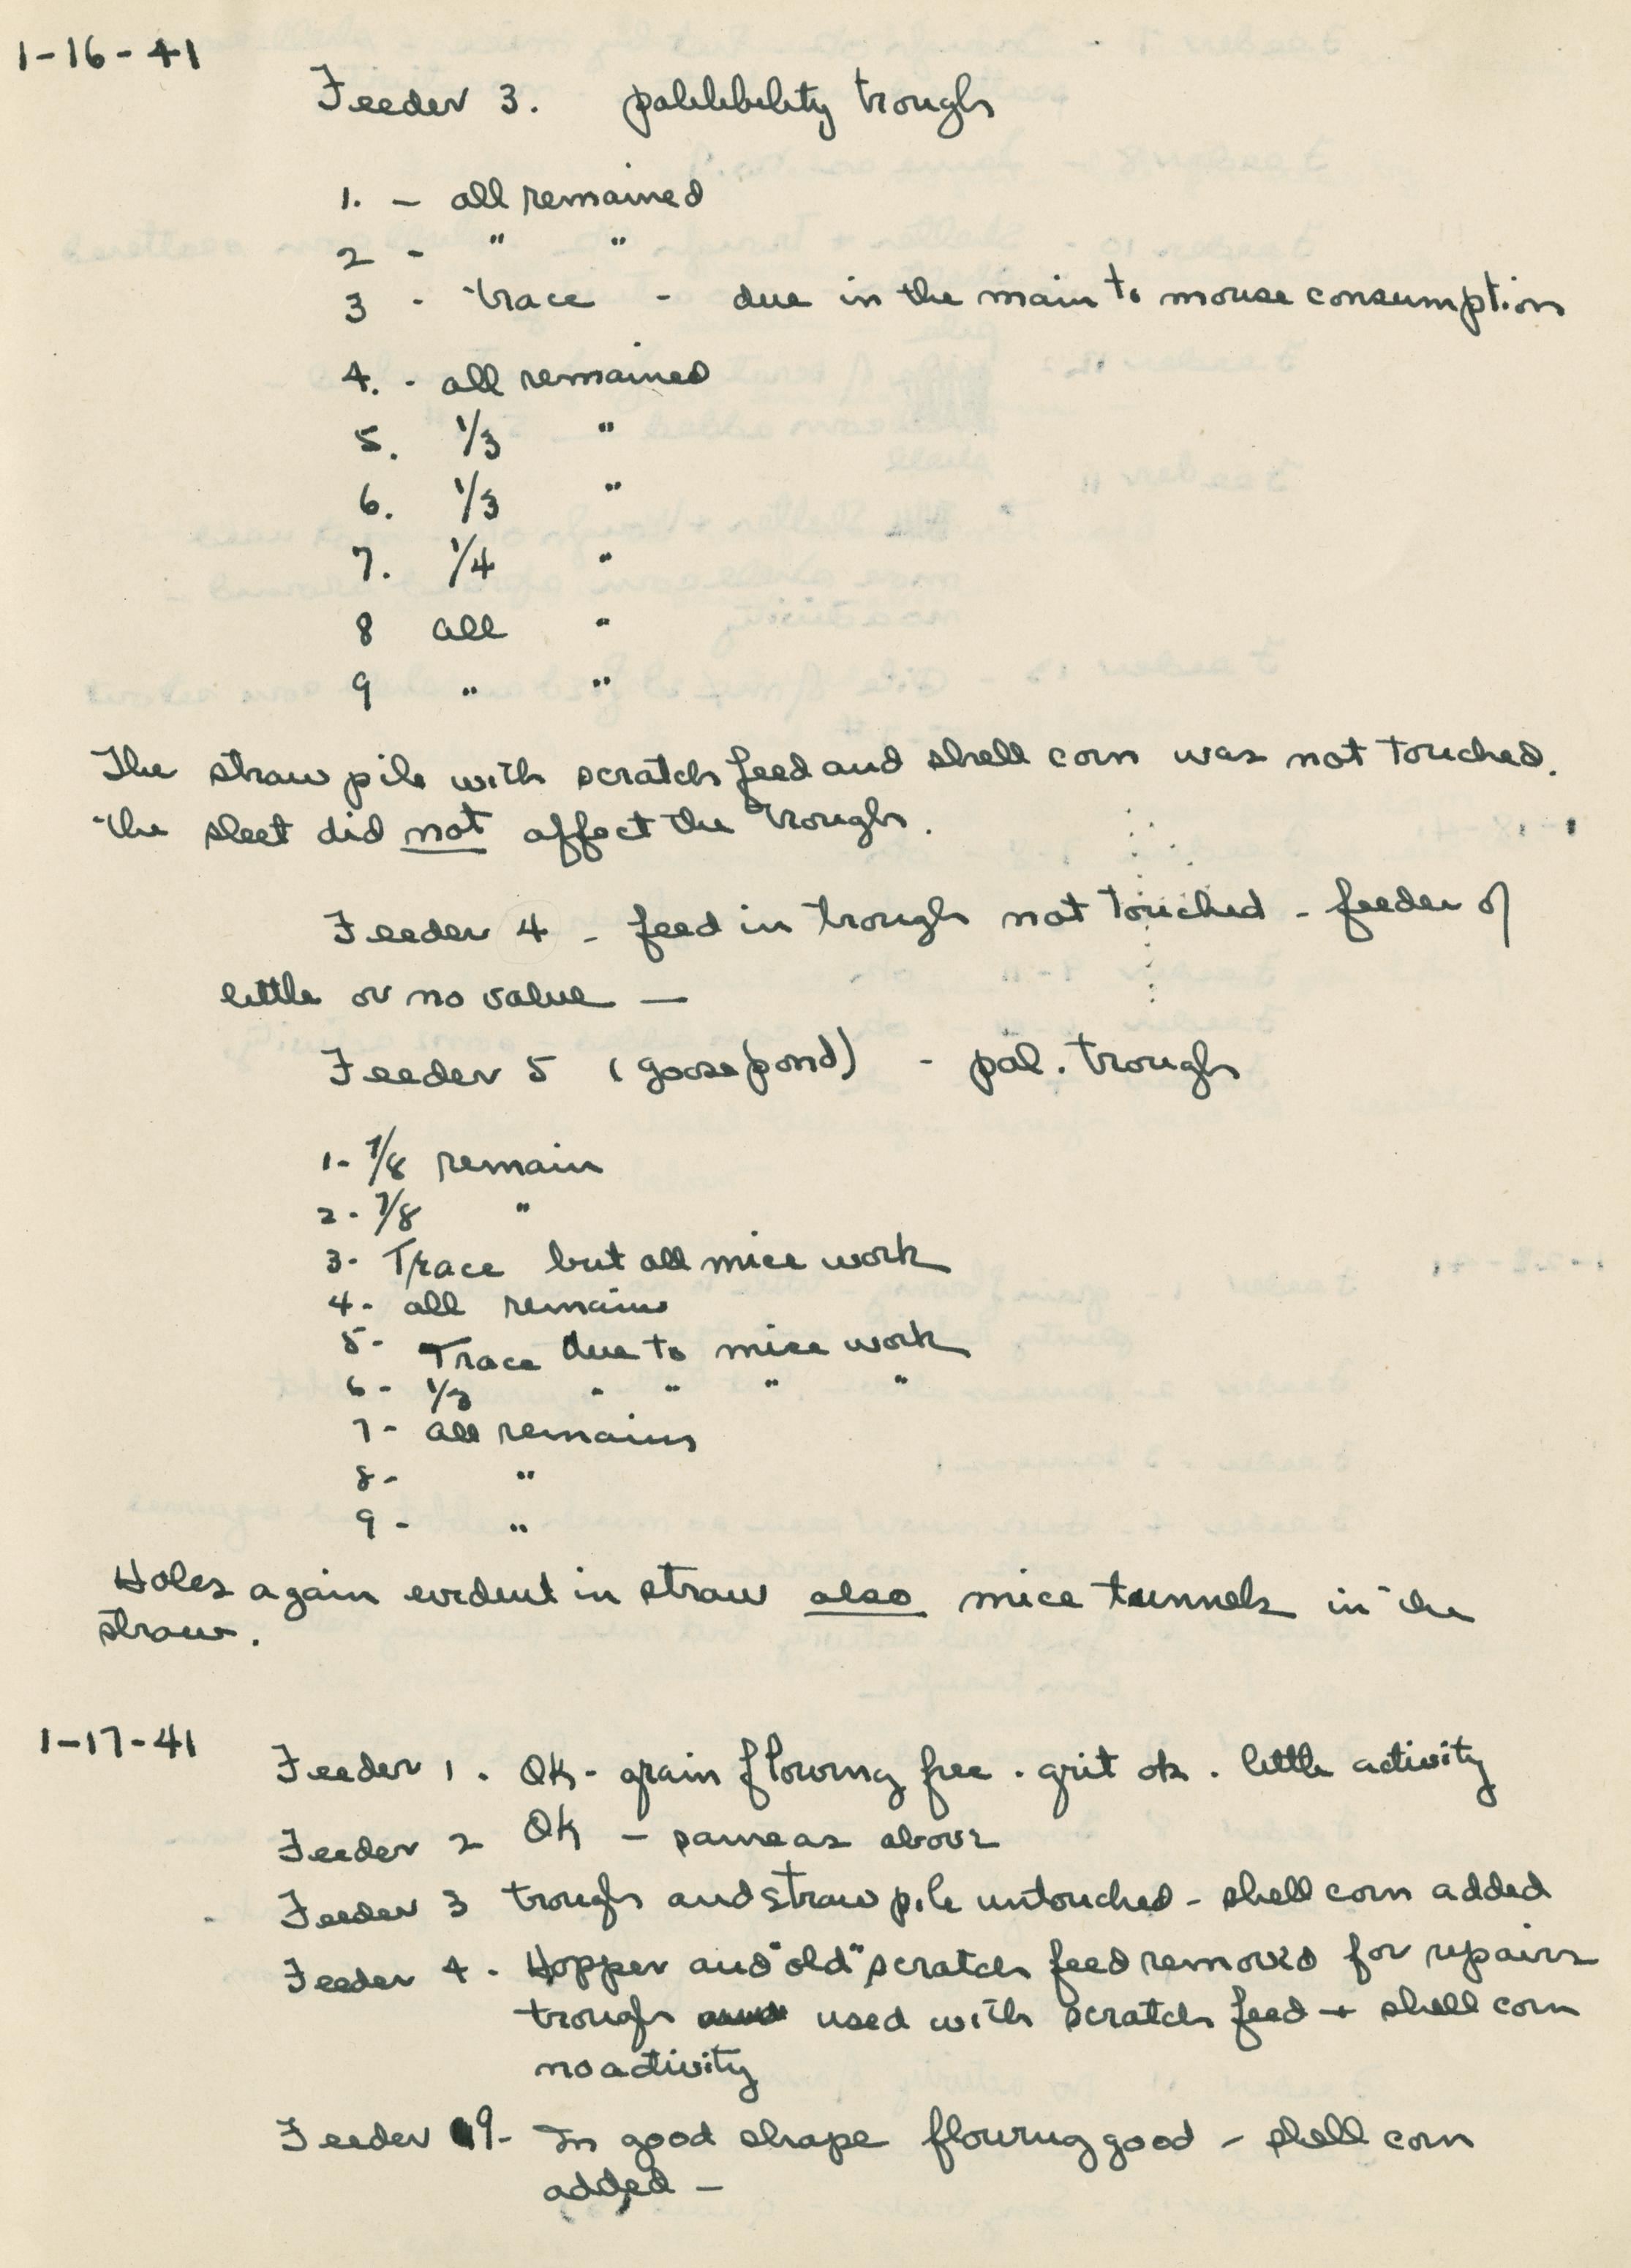 1-16-41
Feeder 3. palilibility trough
1. - all remained
2 - " "
3 - trace - due in the main to mouse consumption
4. - all remained
5. 1/3 "
6. 1/3 "
7. 1/4 "
8 all "
9 " "
The straw pile with scratch feed and shell corn was not touched.
The sleet did not affect the trough.
Feeder 4 - feed in trough not touched - feeder of
little or no value —
Feeder 5 (goose pond) - pal. trough
1- 7/8 remain
2- 7/8 "
3- Trace but all mice work
4- all remains
5- Trace due to mice work
6- 1/3 " " " "
7- all remains
8- "
9- "
Holes again evident in straw also mice tunnels in the
straw.
1-17-41
Feeder 1. OK- grain flowing free. grit ok. little activity
Feeder 2 OK - same as above
Feeder 3 trough and straw pile untouched - shell corn added
Feeder 4. Hopper and "old" scratch feed removed for repairs
trough used with scratch feed + shell corn
no activity
Feeder 9- In good shape flowing good - shell corn
added -